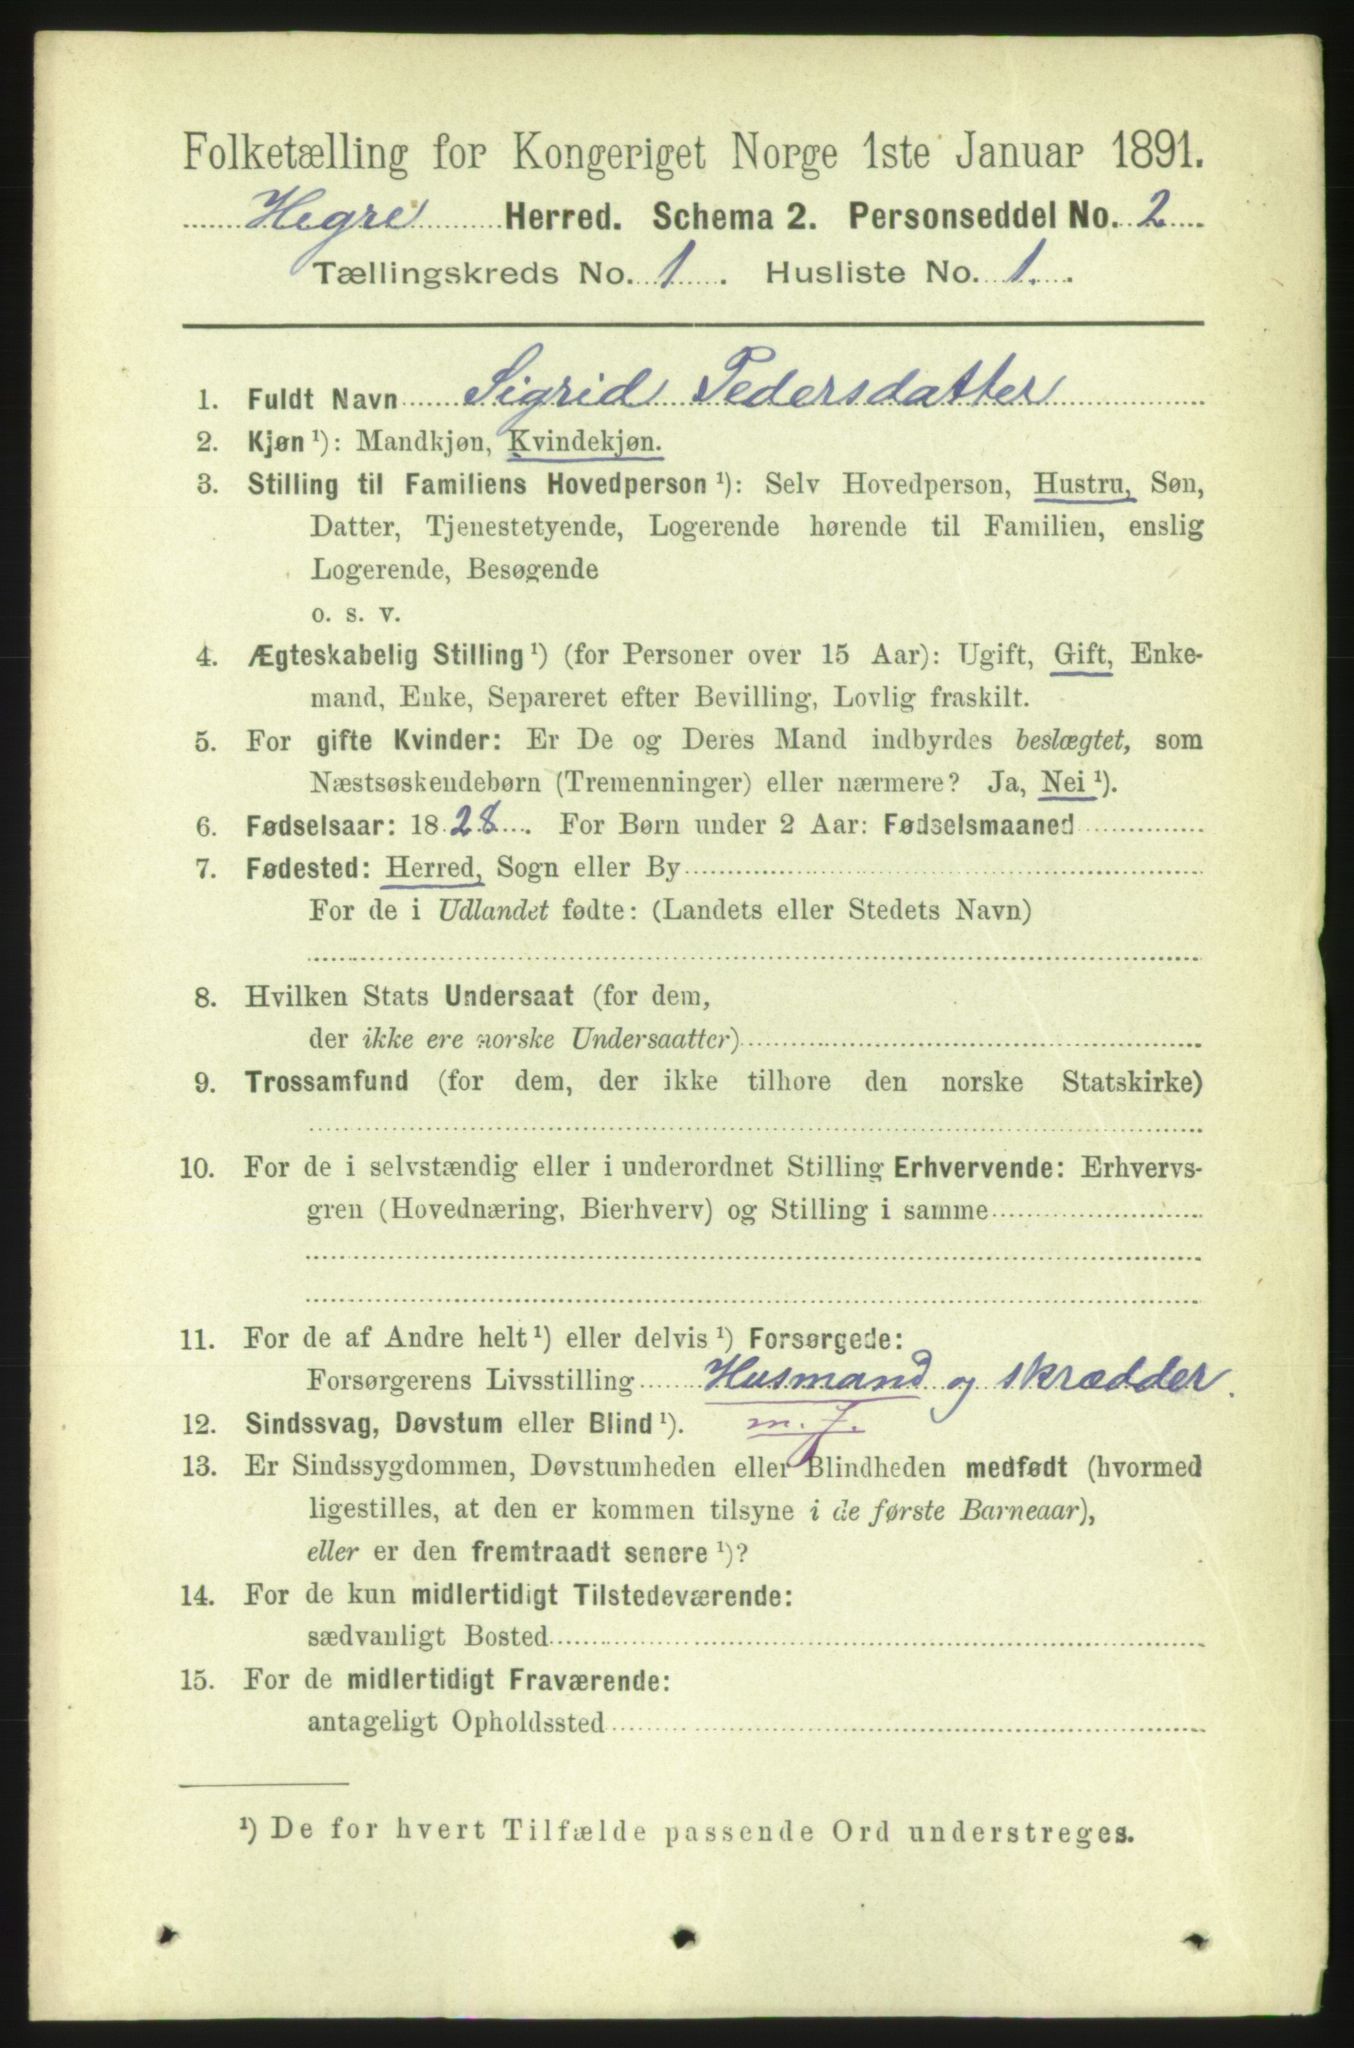 Folketælling for Kongeriget Norge 1ste Januar 1891.
Hegre Herred. Schema 2. Personseddel No. 2
Tællingskreds No. 1. Husliste No. 1.
1. Fuldt Navn Sigrid Pedersdatter
2. Kjøn ¹): Mandkjøn, Kvindekjøn.
3. Stilling til Familiens Hovedperson ¹): Selv Hovedperson, Hustru, Søn,
Datter, Tjenestetyende, Logerende hørende til Familien, enslig
Logerende, Besøgende
o. s. v.
4. Ægteskabelig Stilling ¹) (for Personer over 15 Aar): Ugift, Gift, Enke-
mand, Enke, Separeret efter Bevilling, Lovlig fraskilt.
5. For gifte Kvinder: Er De og Deres Mand indbyrdes beslægtet, som
Næstsøskendebørn (Tremenninger) eller nærmere? Ja, Nei ¹).
6. Fødselsaar: 1828. For Børn under 2 Aar: Fødselsmaaned
7. Fødested: Herred, Sogn eller By
For de i Udlandet fødte: (Landets eller Stedets Navn)
8. Hvilken Stats Undersaat (for dem,
der ikke ere norske Undersaatter)
9. Trossamfund (for dem, der ikke tilhøre den norske Statskirke)
10. For de i selvstændig eller i underordnet Stilling Erhvervende: Erhvervs-
gren (Hovednæring, Bierhverv) og Stilling i samme
11. For de af Andre helt ¹) eller delvis ¹) Forsørgede:
Forsørgerens Livsstilling Husmand og skrædder.
12. Sindssvag, Døvstum eller Blind ¹). m. J.
13. Er Sindssygdommen, Døvstumheden eller Blindheden medfødt (hvormed
ligestilles, at den er kommen tilsyne i de første Barneaar),
eller er den fremtraadt senere ¹)?
14. For de kun midlertidigt Tilstedeværende:
sædvanligt Bosted
15. For de midlertidigt Fraværende:
antageligt Opholdssted
¹) De for hvert Tilfælde passende Ord understreges.